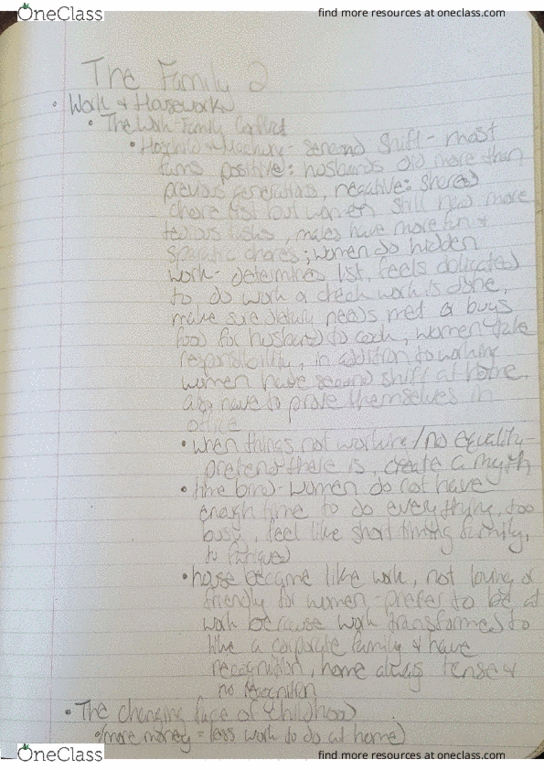 OneClass
find more resources at oneclass.com
The Family 2
• Work + Housework
• The Work Family Conflict
• Hochschild + Machung - second shift - most
fams positive: husbands did more than
previous generations, negative: shared
chore list but women still had more
tedious tasks, males have more fun +
chores; women do hidden
work - determines list, feels obligated
to do work or check work is done,
make sure dietary needs met or buys
food for husband to cook, women take
responsibility, in addition to working
women have second shift at home,
also have to prove themselves in
office
• when things not working/no equality
pretend there is, create a myth
• time bind - women do not have
enough time to do everything, too
busy, feel like short timing family,
fatigued
• house became like work, not loving or
friendly for women - prefer to be at
work because work transformed to
like a corporate family + have
recognition, home always tense +
no recognition
• The changing face of childhood
(more money = less work to do at home)
OneClass
find more resources at oneclass.com